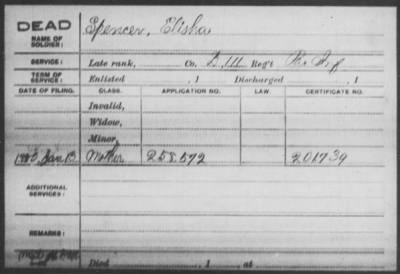 DEAD
NAME OF SOLDIER: Spencer, Elisha
SERVICE: Late rank, Co. Reg't
TERM OF SERVICE: Enlisted , 1 Discharged , 1
DATE OF FILING. CLASS. APPLICATION NO. LAW. CERTIFICATE NO.
Invalid,
Widow,
Minor,
Jan 13 Mother 258.572 201739
ADDITIONAL SERVICES:
REMARKS:
Died , 1 , at